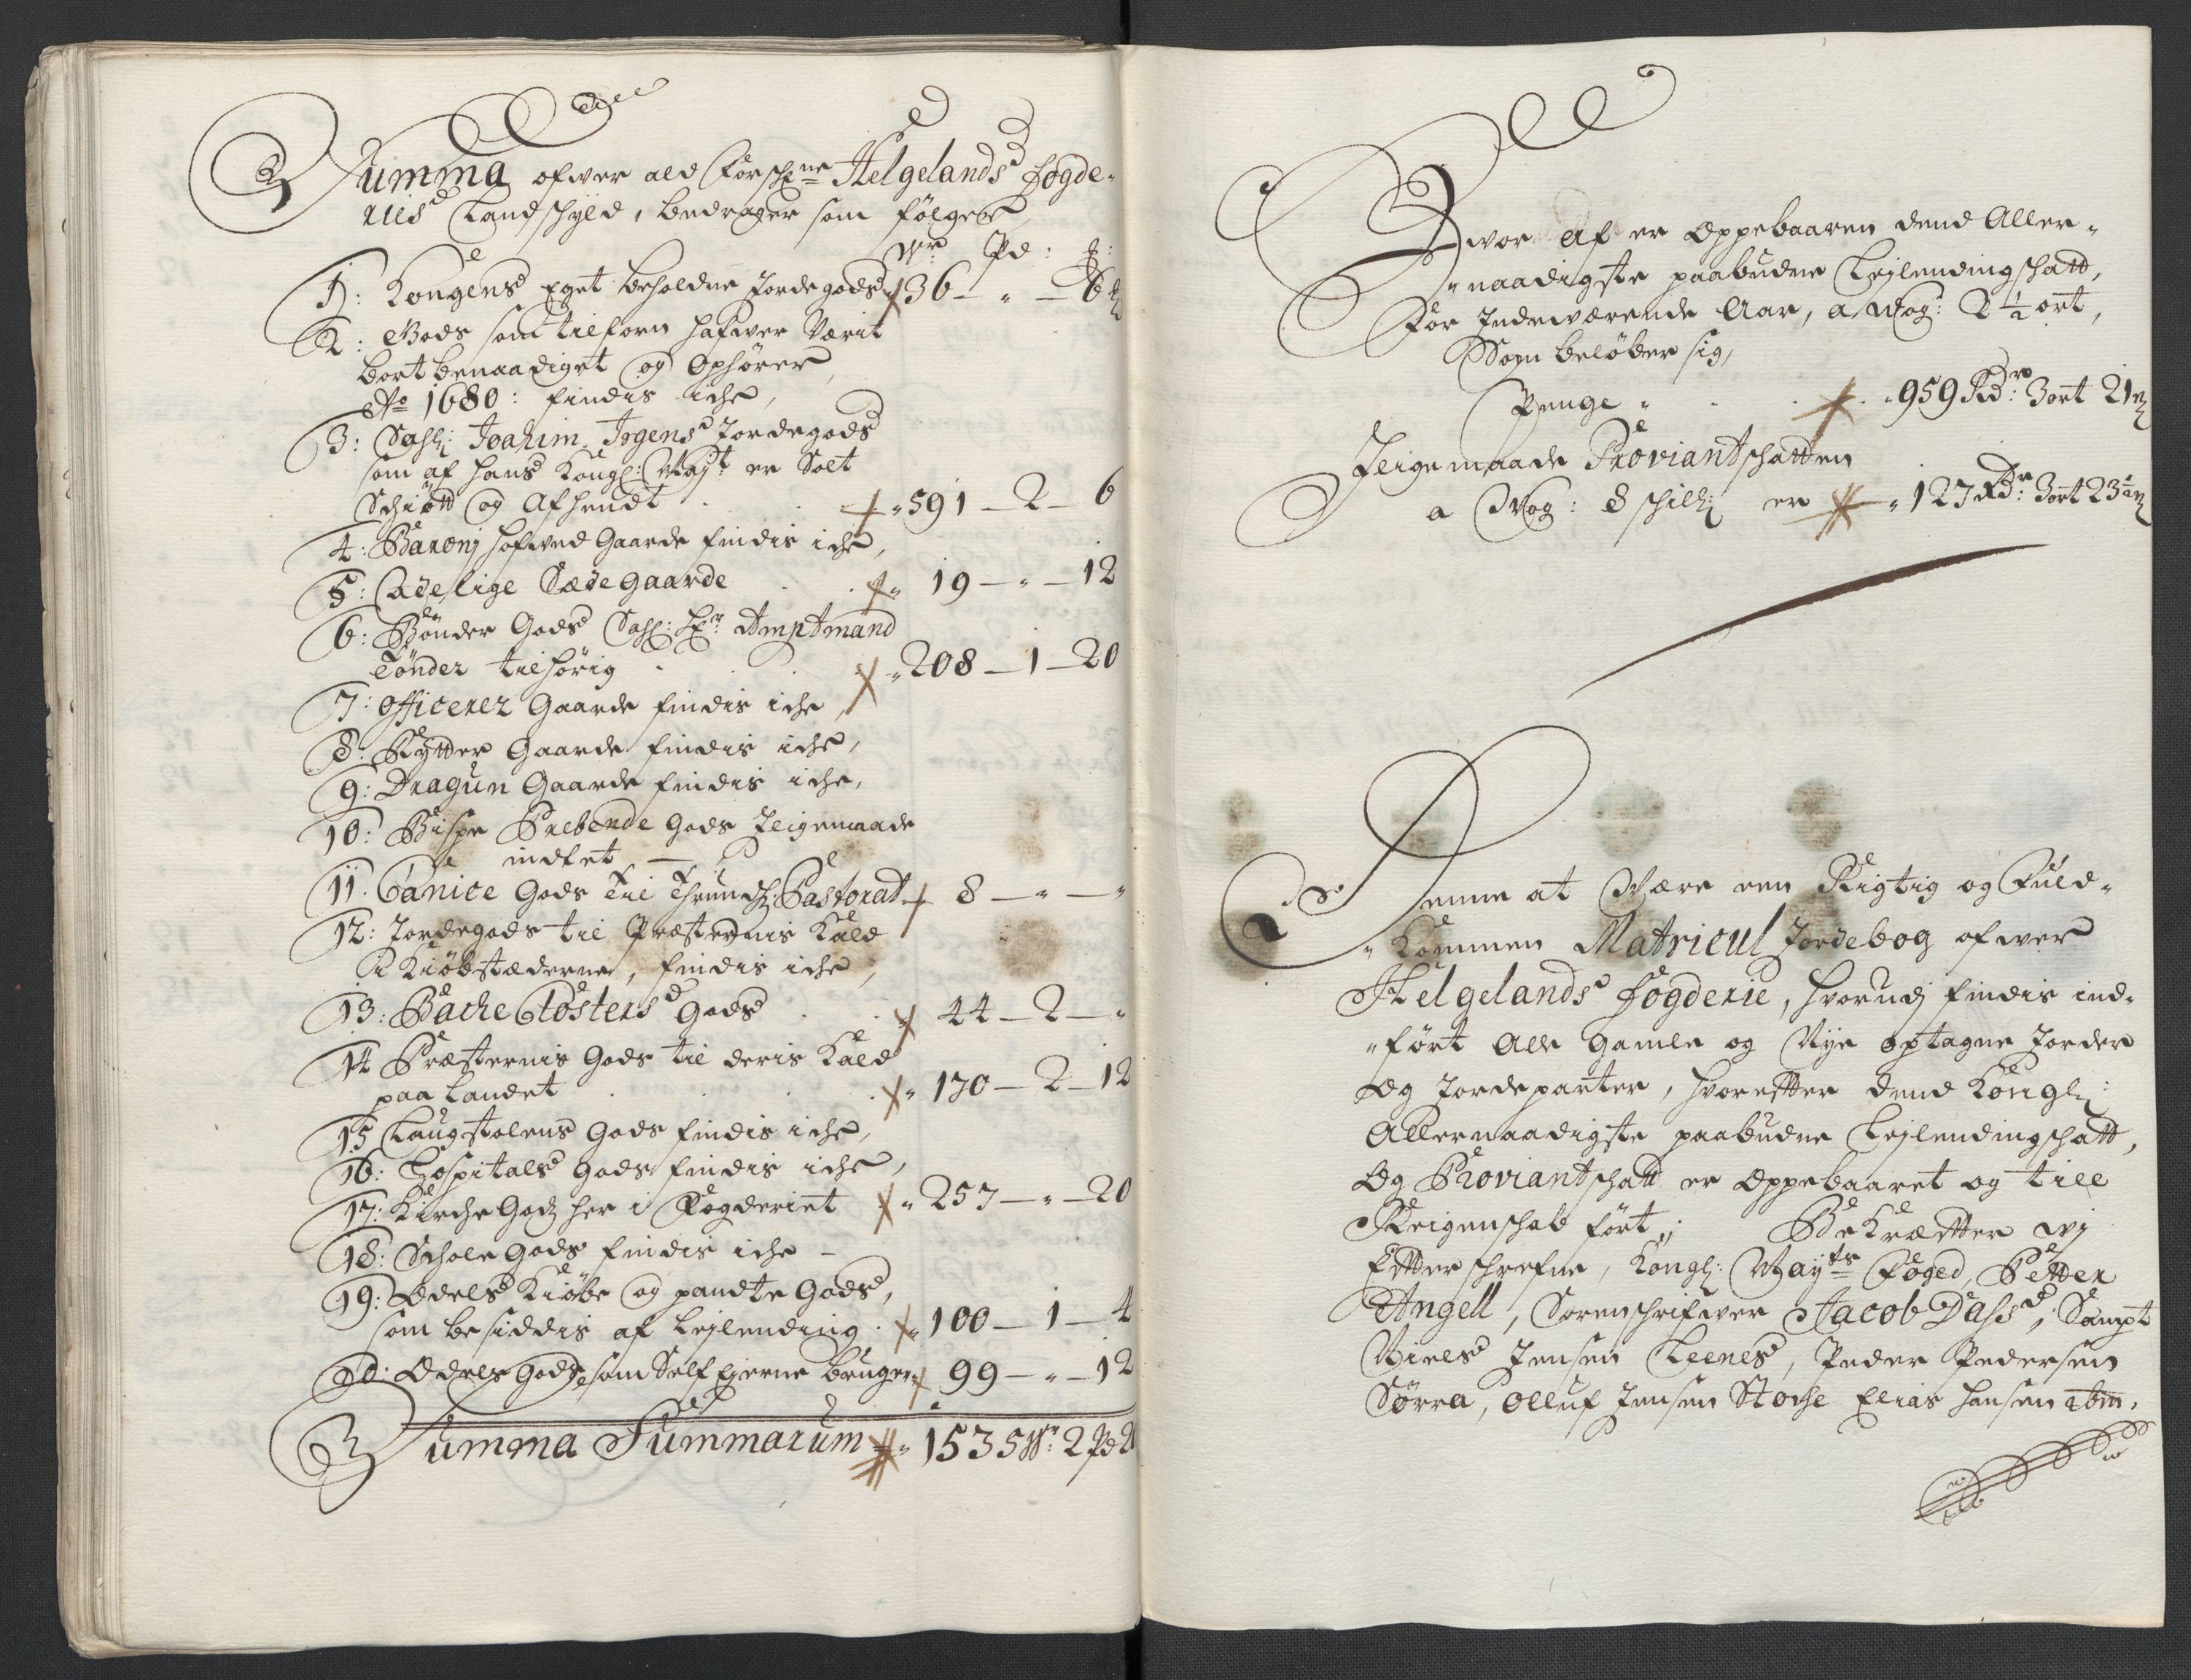 Summa ofwer ald Forschne Helgelands fogde-
riis Landschyld, bedrager som følger
Wr Pd: ℔:
1: Kongens Eget beholdne Jordegods 136 - " - 6
2: Gods som tilforn hafwer Værit
bort benaadiget og Ophører
Ao 1680: findis iche,
3: Sahl: Joahim Irgens Jordegods
som af hans Kongl: Mayt er Solt
Schiøtt og Afhendt " 591 - 2 - 6
4: Baronj hofwed Gaarde findis iche,
5: Adelige Sædegaarde " 19 - " - 12
6: Bønder Gods Sahl: Hr: Amptmand
Tønder tilhørig " 208 - 1 - 20
7: Officerer Gaarde findis iche,
8: Rytter Gaarde findis iche,
9: Dragun Gaarde findis iche,
10: Bispe Prebende Gods Ieigemaade
indtet -
11: Canice Gods Til Thrundh: Pastorat 8 - " - "
12: Jordegods til Præsternis Kald
i Kiøbstæderne, findis iche,
13: Bache Closters Gods " 44 - 2 - "
14 Præsternis Gods til deris Kald
paa Landet " 170 - 2 - 12
15 Laugstolens Gods findis iche,
16: Hospitals Gods findis iche,
17: Kirche Gods her i Fogderiet " 257 - " - 20
18: Schole Gods findis iche -
19: Odels Kiøbe og pandte Gods,
som besiddis af Lejlending " 100 - 1 - 4
20: Odels Gods, som Self Ejerne bruger 99 - " - 12
Summa Summarum " 1535 Wr: 2 Pd 2
Hvor Af er Oppebaaren dend Aller-
"naadigste paabudne Lejlendingschatt,
For Indeværende Aar, a Wog: 2½ ort,
Som beløber sig,
Penge " 959 Rdr: 3 ort 21 ß
Ieigemaade Proviantschatten
a Wog: 8 schill: er " 127 Rdr: 3 ort 23½ ß
Denne at Være een Rigtig og Fuld-
"Kommen Matricul Jordebog ofwer
Helgelands fogderie, hvorudj findis ind-
"ført Alle Gamle og Nye optagne Jorder
Og Jordeparter, hvorefter dend Kongl:
Allernaadigste paabudne Lejlendingschatt,
Og Proviantschatt er Oppebaaret og till
Reigenschab ført; Bekræfter wj
Efterschrefne, Kongl: Mayts Foged, Petter
Angell, Sorenschrifwer Jacob Dass, Sampt
Niels Jensen Leenes, Peder Pedersen
Sørra, Olluf Jensen Stoche Elias Hansen ibm.